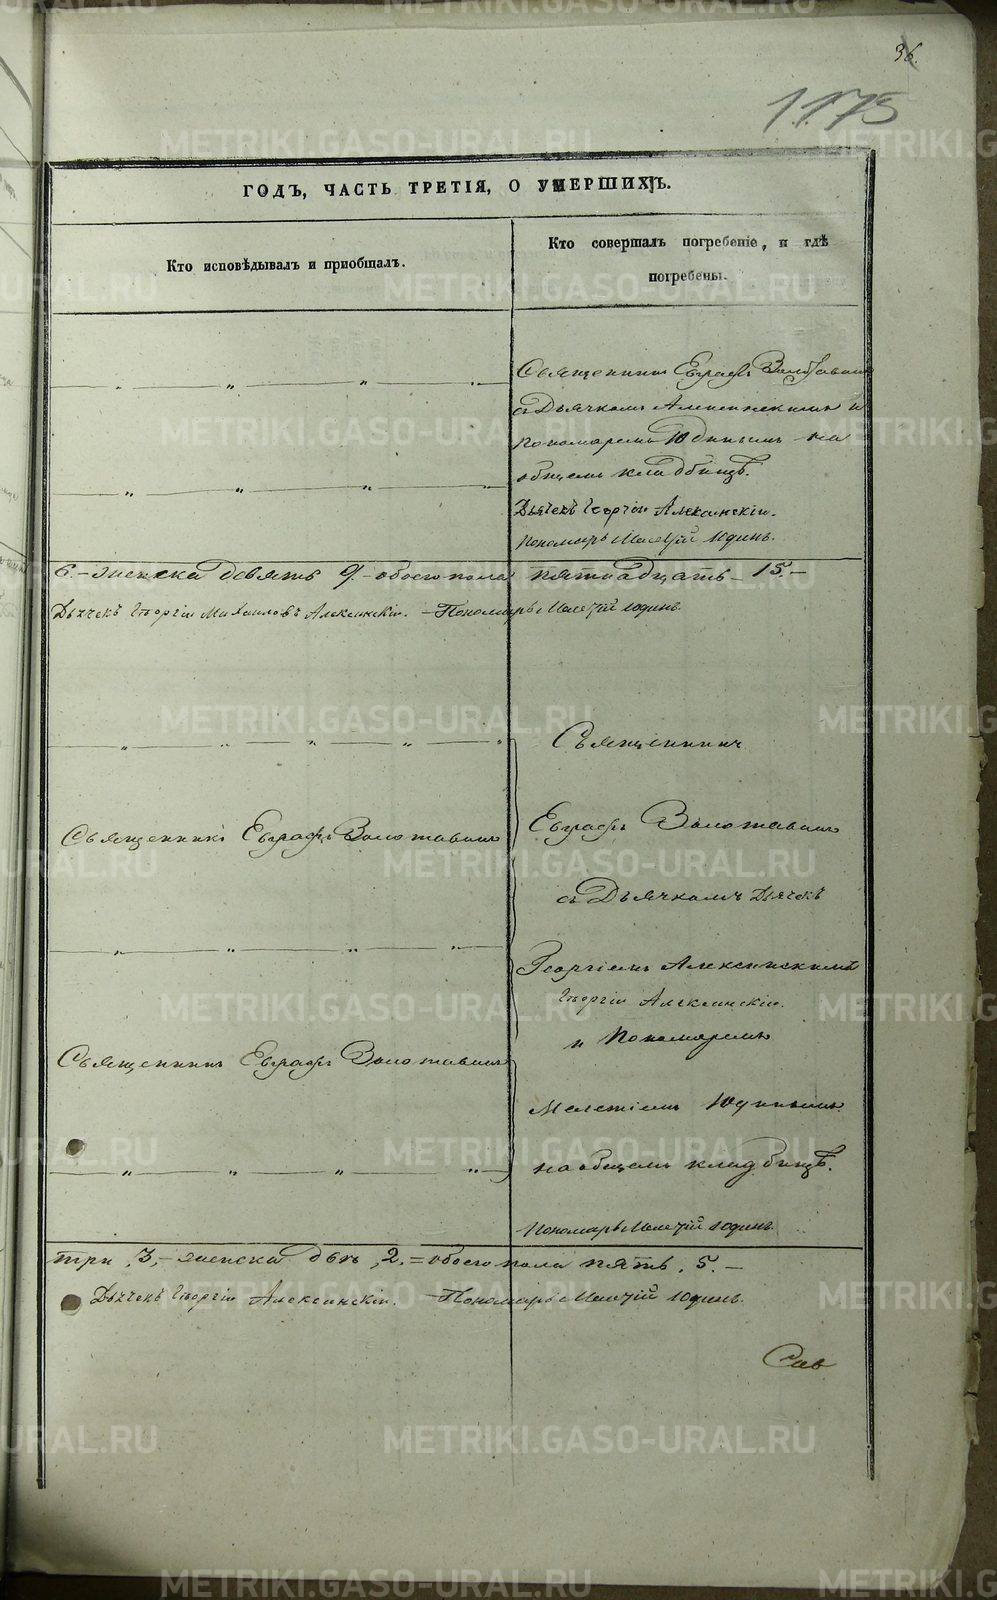 36.
1175
ГОДЪ, ЧАСТЬ ТРЕТІЯ, О УМЕРШИХЪ.
Кто исповѣдывалъ и приобщалъ.
Кто совершалъ погребеніе, и гдѣ
погребены.
Священникъ Евграфъ
съ Дьячкомъ Алексинскимъ и
пономаремъ Юдинымъ на
общемъ кладбищѣ.
Дьячекъ Георгій Алексинскій.
Пономарь Мелетій Юдинъ.
6.- женска девять 9.- обоего пола пятнадцать - 15.-
Дьячекъ Георгій Михаиловъ Алексинскій. - Пономарь Мелетій Юдинъ.
Священникъ
Священникъ Евграфъ Золотавинъ
Евграфъ Золотавинъ
съ Дьячкомъ Дьячекъ
Георгіемъ Алексинскимъ
Георгій Алексинскій.
и Пономаремъ
Священникъ Евграфъ Золотавинъ
Мелетіемъ Юдинымъ
на общемъ кладбищѣ.
Пономарь Мелетій Юдинъ.
три, 3, - женска двѣ, 2. = обоего пола пять, 5. -
Дьячекъ Георгій Алексинскій. - Пономарь Мелетій Юдинъ.
METRIKI.GASO-URAL.RU